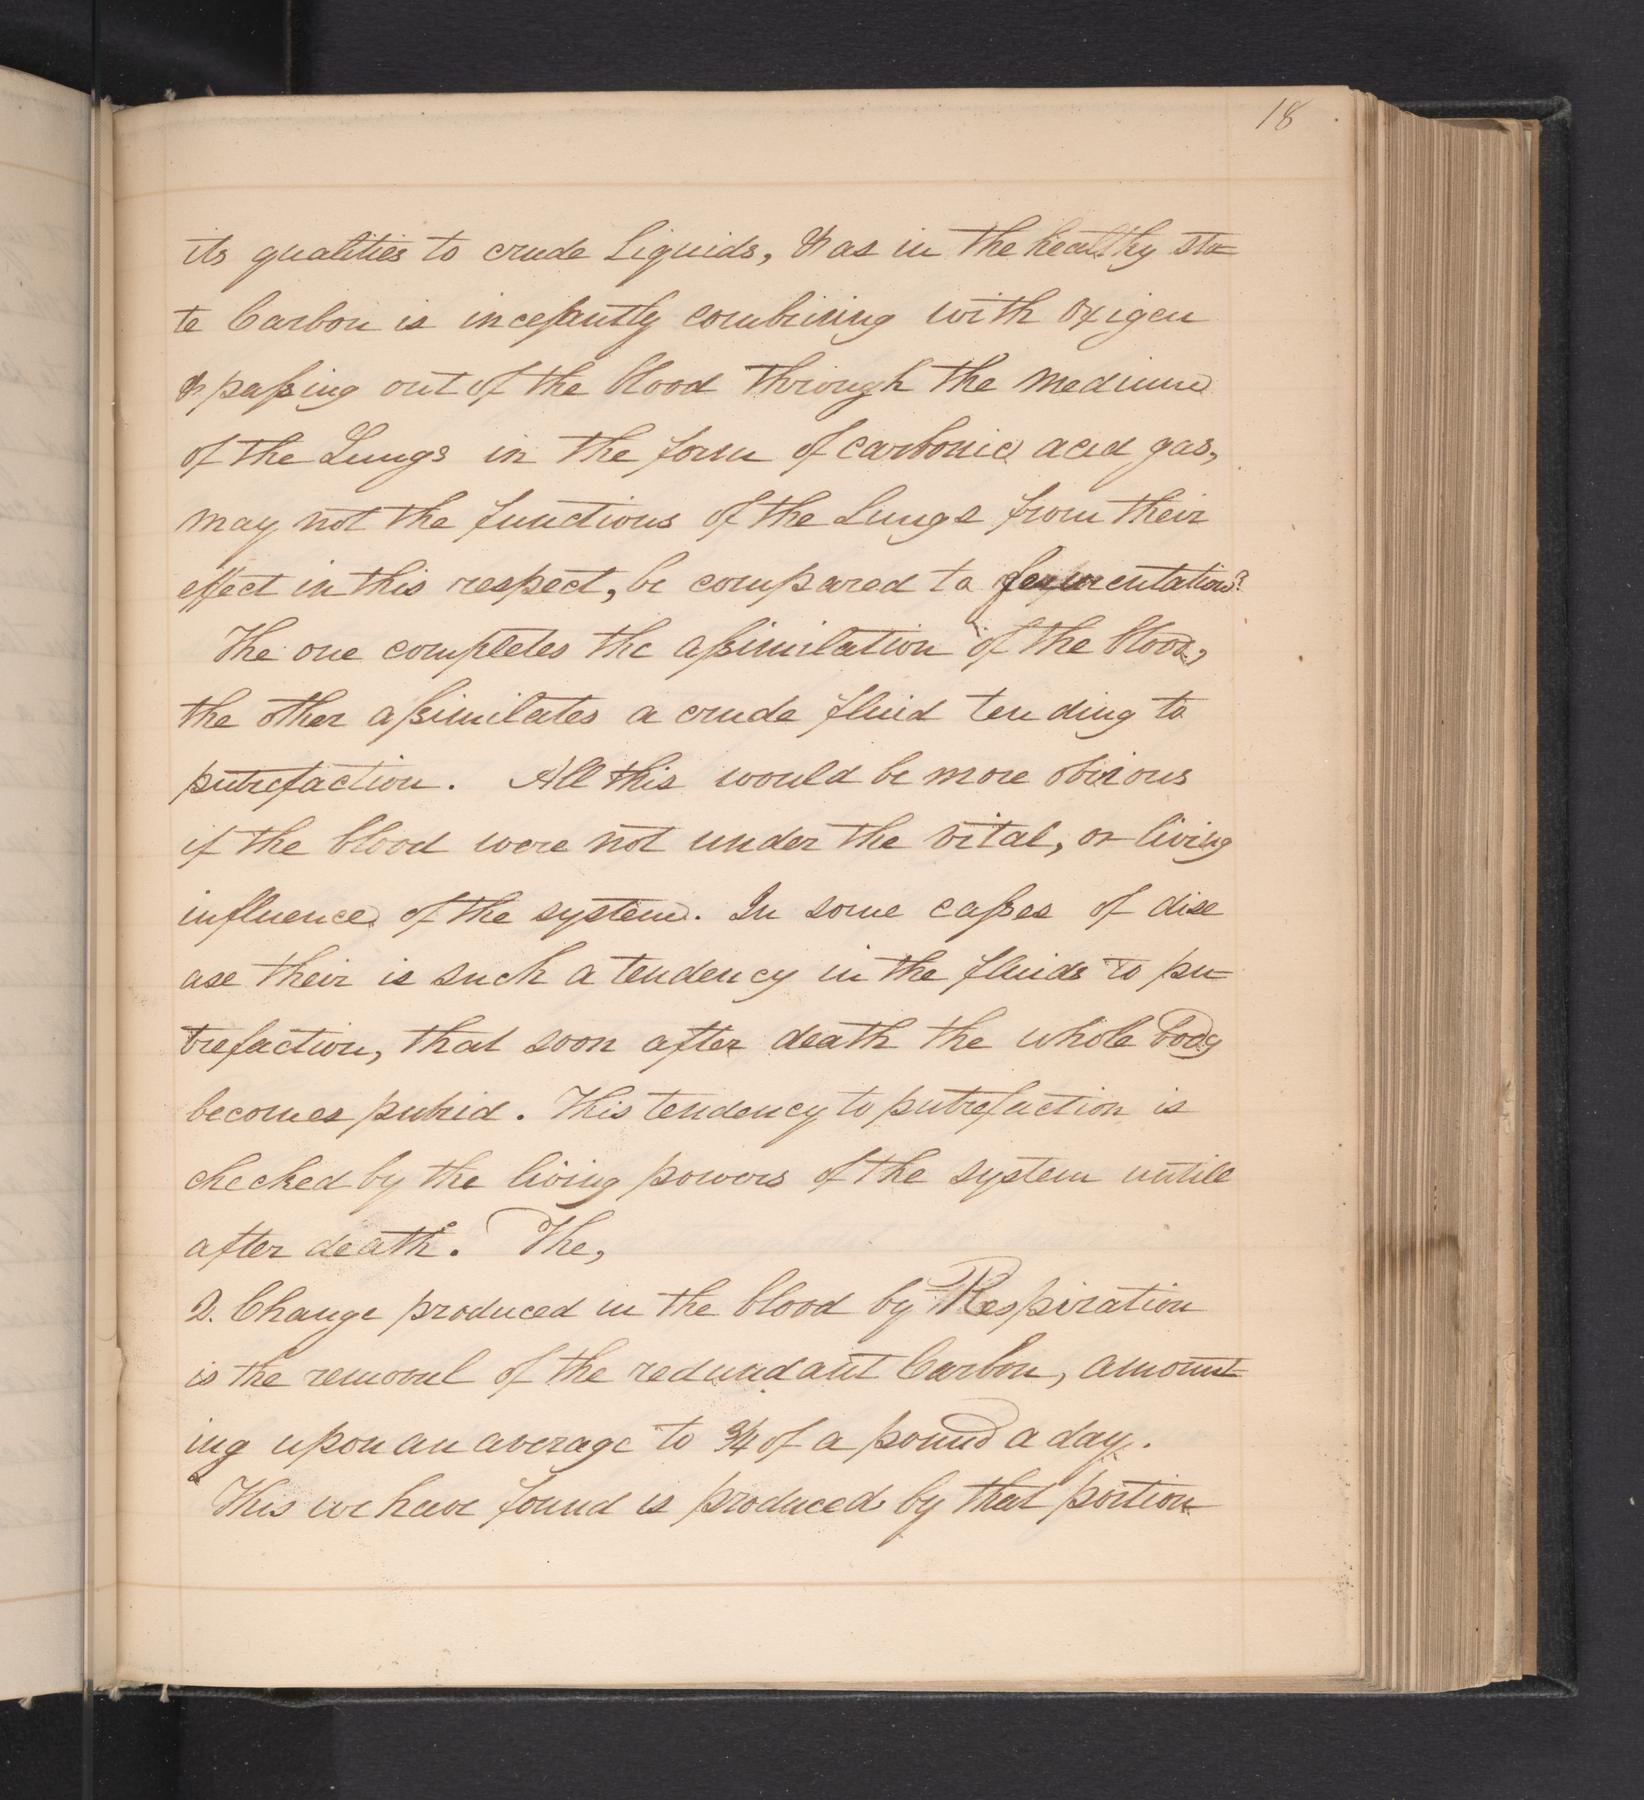 18
its qualities to crude Liquids, & as in the healthy sta-
te Carbon is incessantly combining with Oxigen
& passing out of the blood through the medium
of the Lungs in the form of carbonic acid gas,
may not the functions of the Lungs from their
effect in this respect, be compared to fermentation?
The one completes the assimilation of the blood,
the other assimilates a crude fluid tending to
putrefaction. All this would be more obvious
if the blood were not under the vital, or living
influence of the system. In some casses of dise
ase their is such a tendency in the fluids to pu-
trefaction, that soon after death the whole body
becomes putrid. This tendency to putrefaction is
checked by the living powers of the system untill
after death. The,
2. Change produced in the blood by Respiration
is the removal of the redundant Carbon, amount-
ing upon an average to 3/4 of a pound a day.
This we have found is produced by that portion